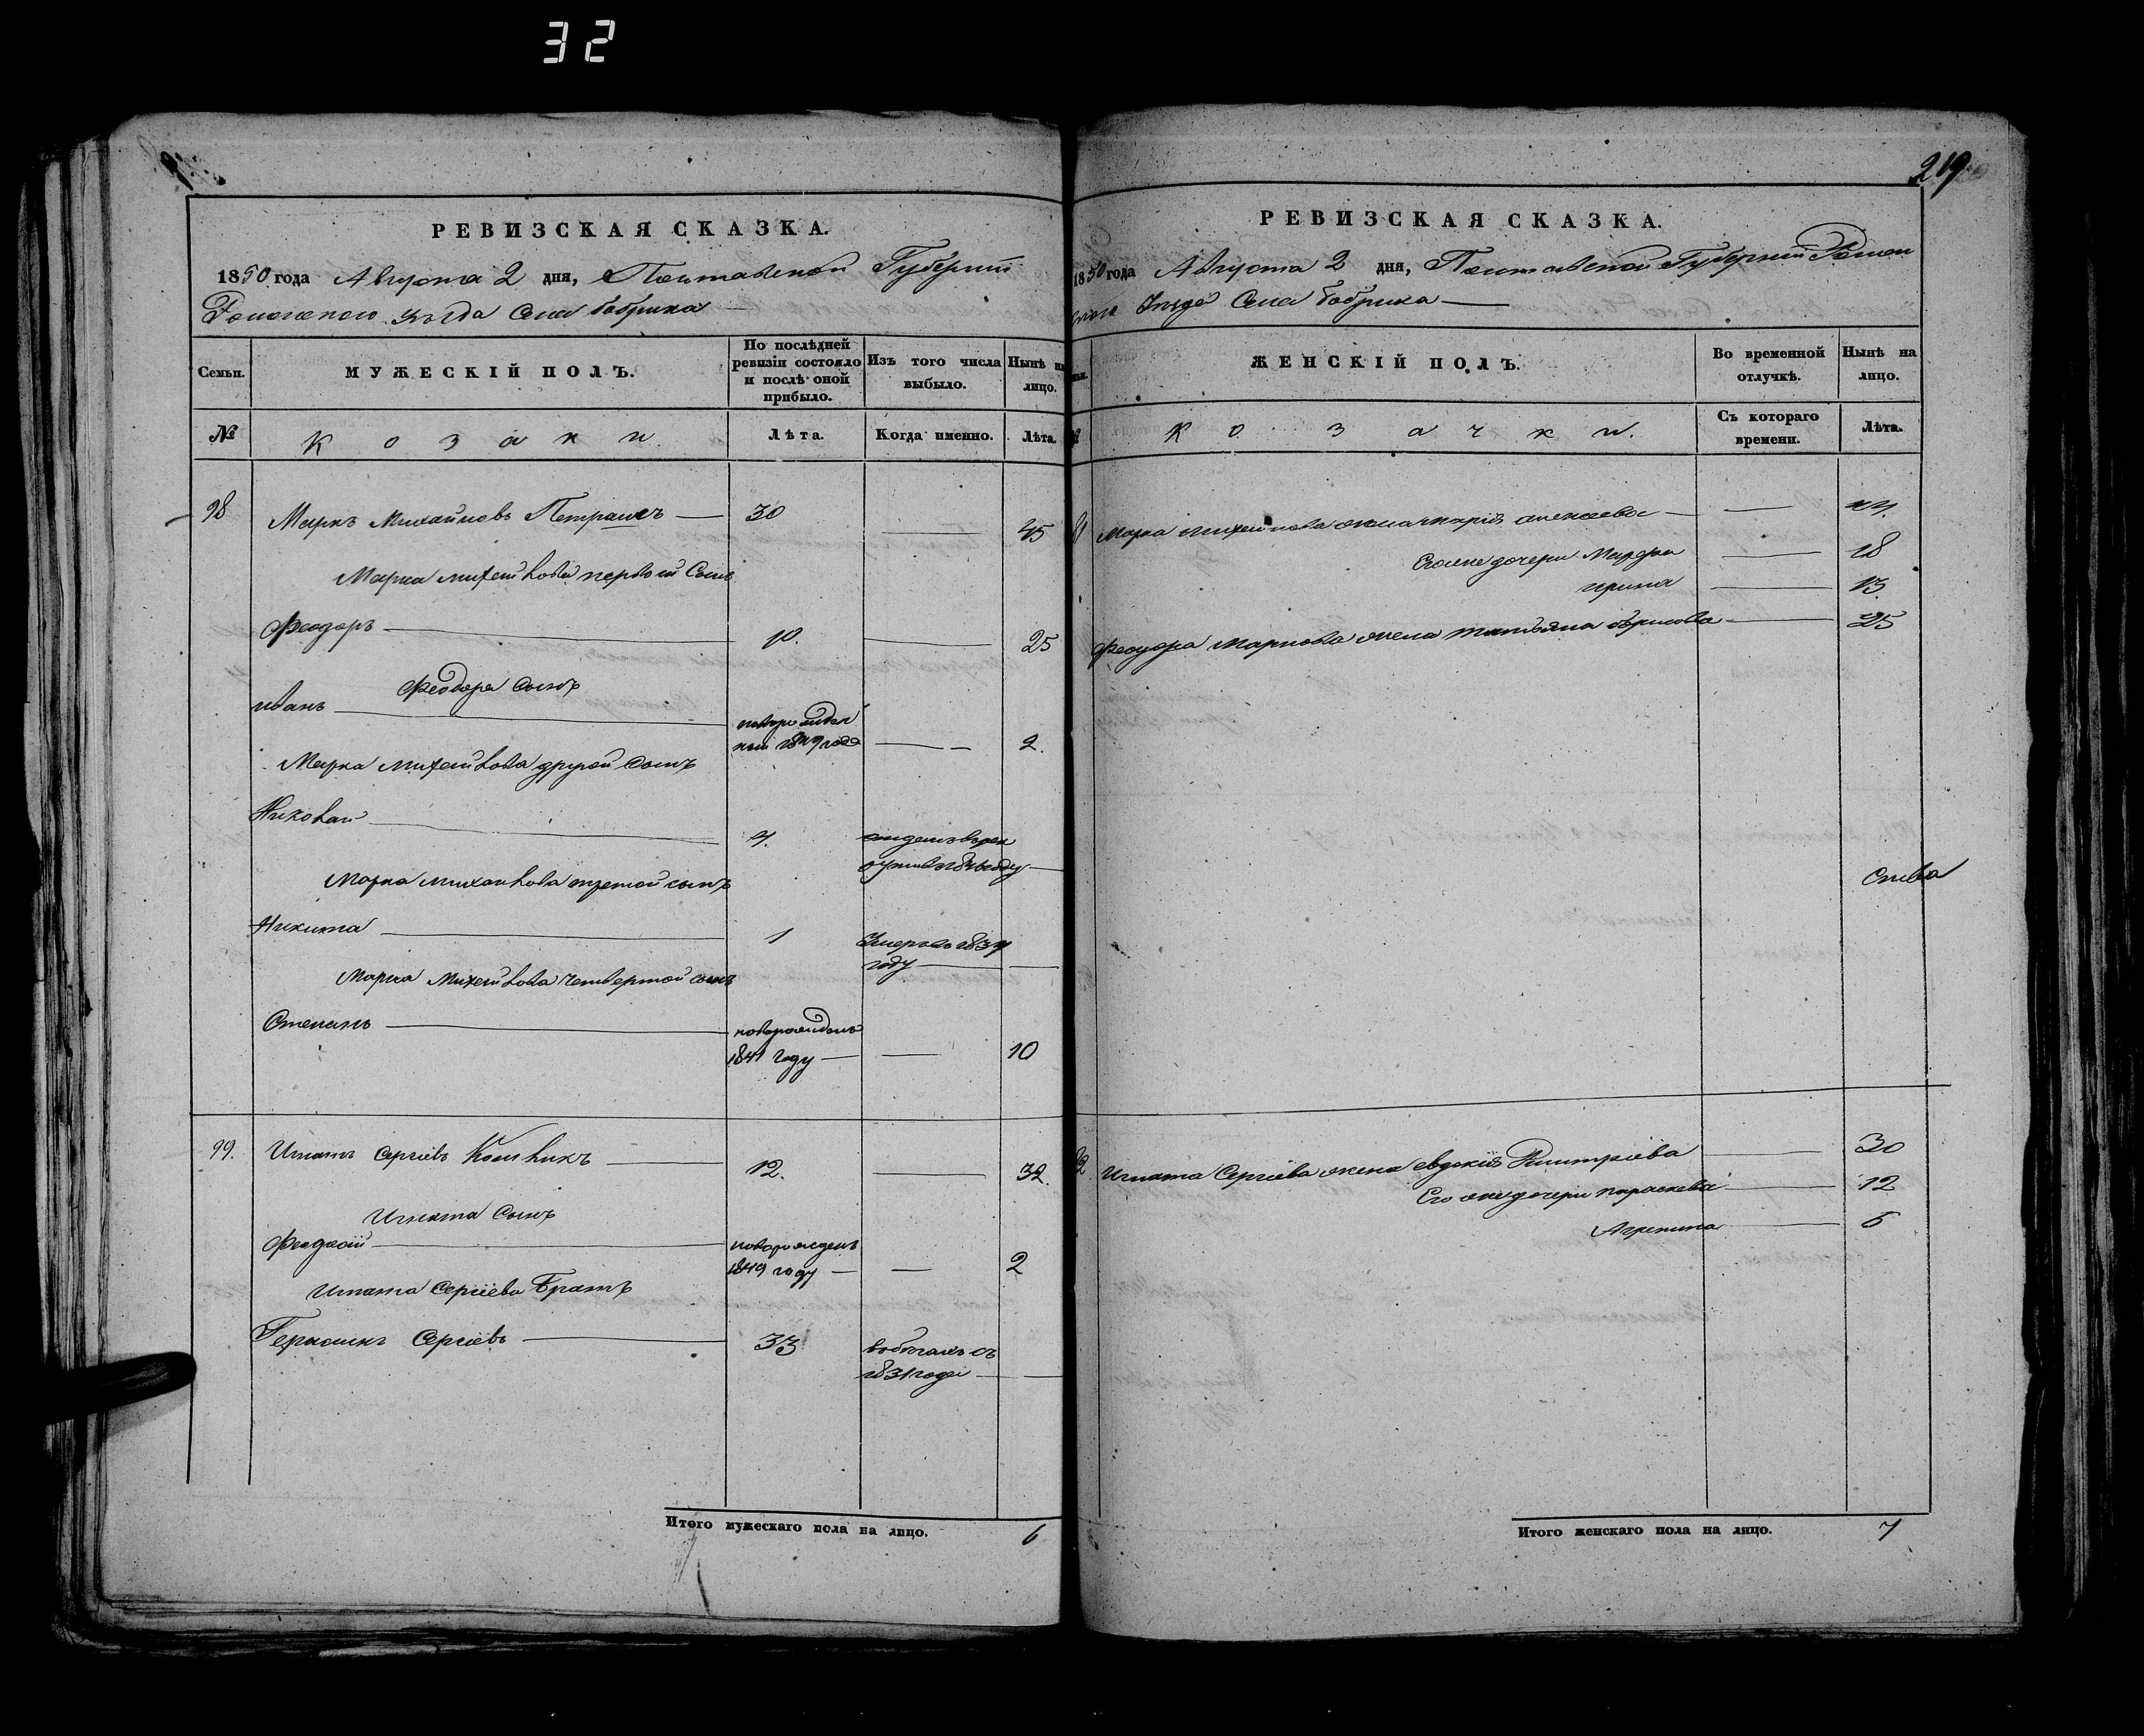 32
219
РЕВИЗСКАЯ СКАЗКА.
1850 года Августа 2 дня, Полтавской Губернiи
Роменского уѣзда Села Бобрика
Семьи.
МУЖЕСКIЙ ПОЛЪ.
По послѣдней ревизiи состояло и послѣ оной прибыло.
Изъ того числа выбыло.
Нынѣ на лицо.
№
Козаки.
Лѣта.
Когда именно.
Лѣта.
98
Маркъ Михайловъ — 30 — 45
Марка Михайлова первой сынъ
Феодоръ — 10. — 25
Феодора сынъ
Иванъ — новорожден
ный 1849 года — 2.
Марка Михайлова другой сынъ
Николай —
Марка Михайлова третой сынъ
Никита — 1
Умеръ въ
году —
Марка Михайлова четвертой сынъ
Степанъ — новорожденъ
1841 году — — 10
99.
Игнатъ Сергiевъ — 12. — 32.
Игната сынъ
новорожденъ
1849 году — — 2
Игната Сергiева братъ
Сергiевъ — 33
въ бѣгахъ съ
1831 года —
Итого мужескаго пола на лицо. 6
РЕВИЗСКАЯ СКАЗКА.
1850 года Августа 2 дня, Полтавской Губернiи Ромен
ского уѣзда Села Бобрика —
ЖЕНСКIЙ ПОЛЪ.
Во временной отлучкѣ.
Нынѣ на лицо.
Козачки.
Съ котораго времени.
Лѣта.
Марка Михайлова жена Марiя — — 44.
Его же дочери Марфа — 18
Ирина — 13.
Феодора Маркова жена Татьяна — 25
Игната Сергiева жена Евдокiя Дмитрiева — 30
Его же дочери Параскева — 12
Агрепина — 6
Итого женскаго пола на лицо. 7